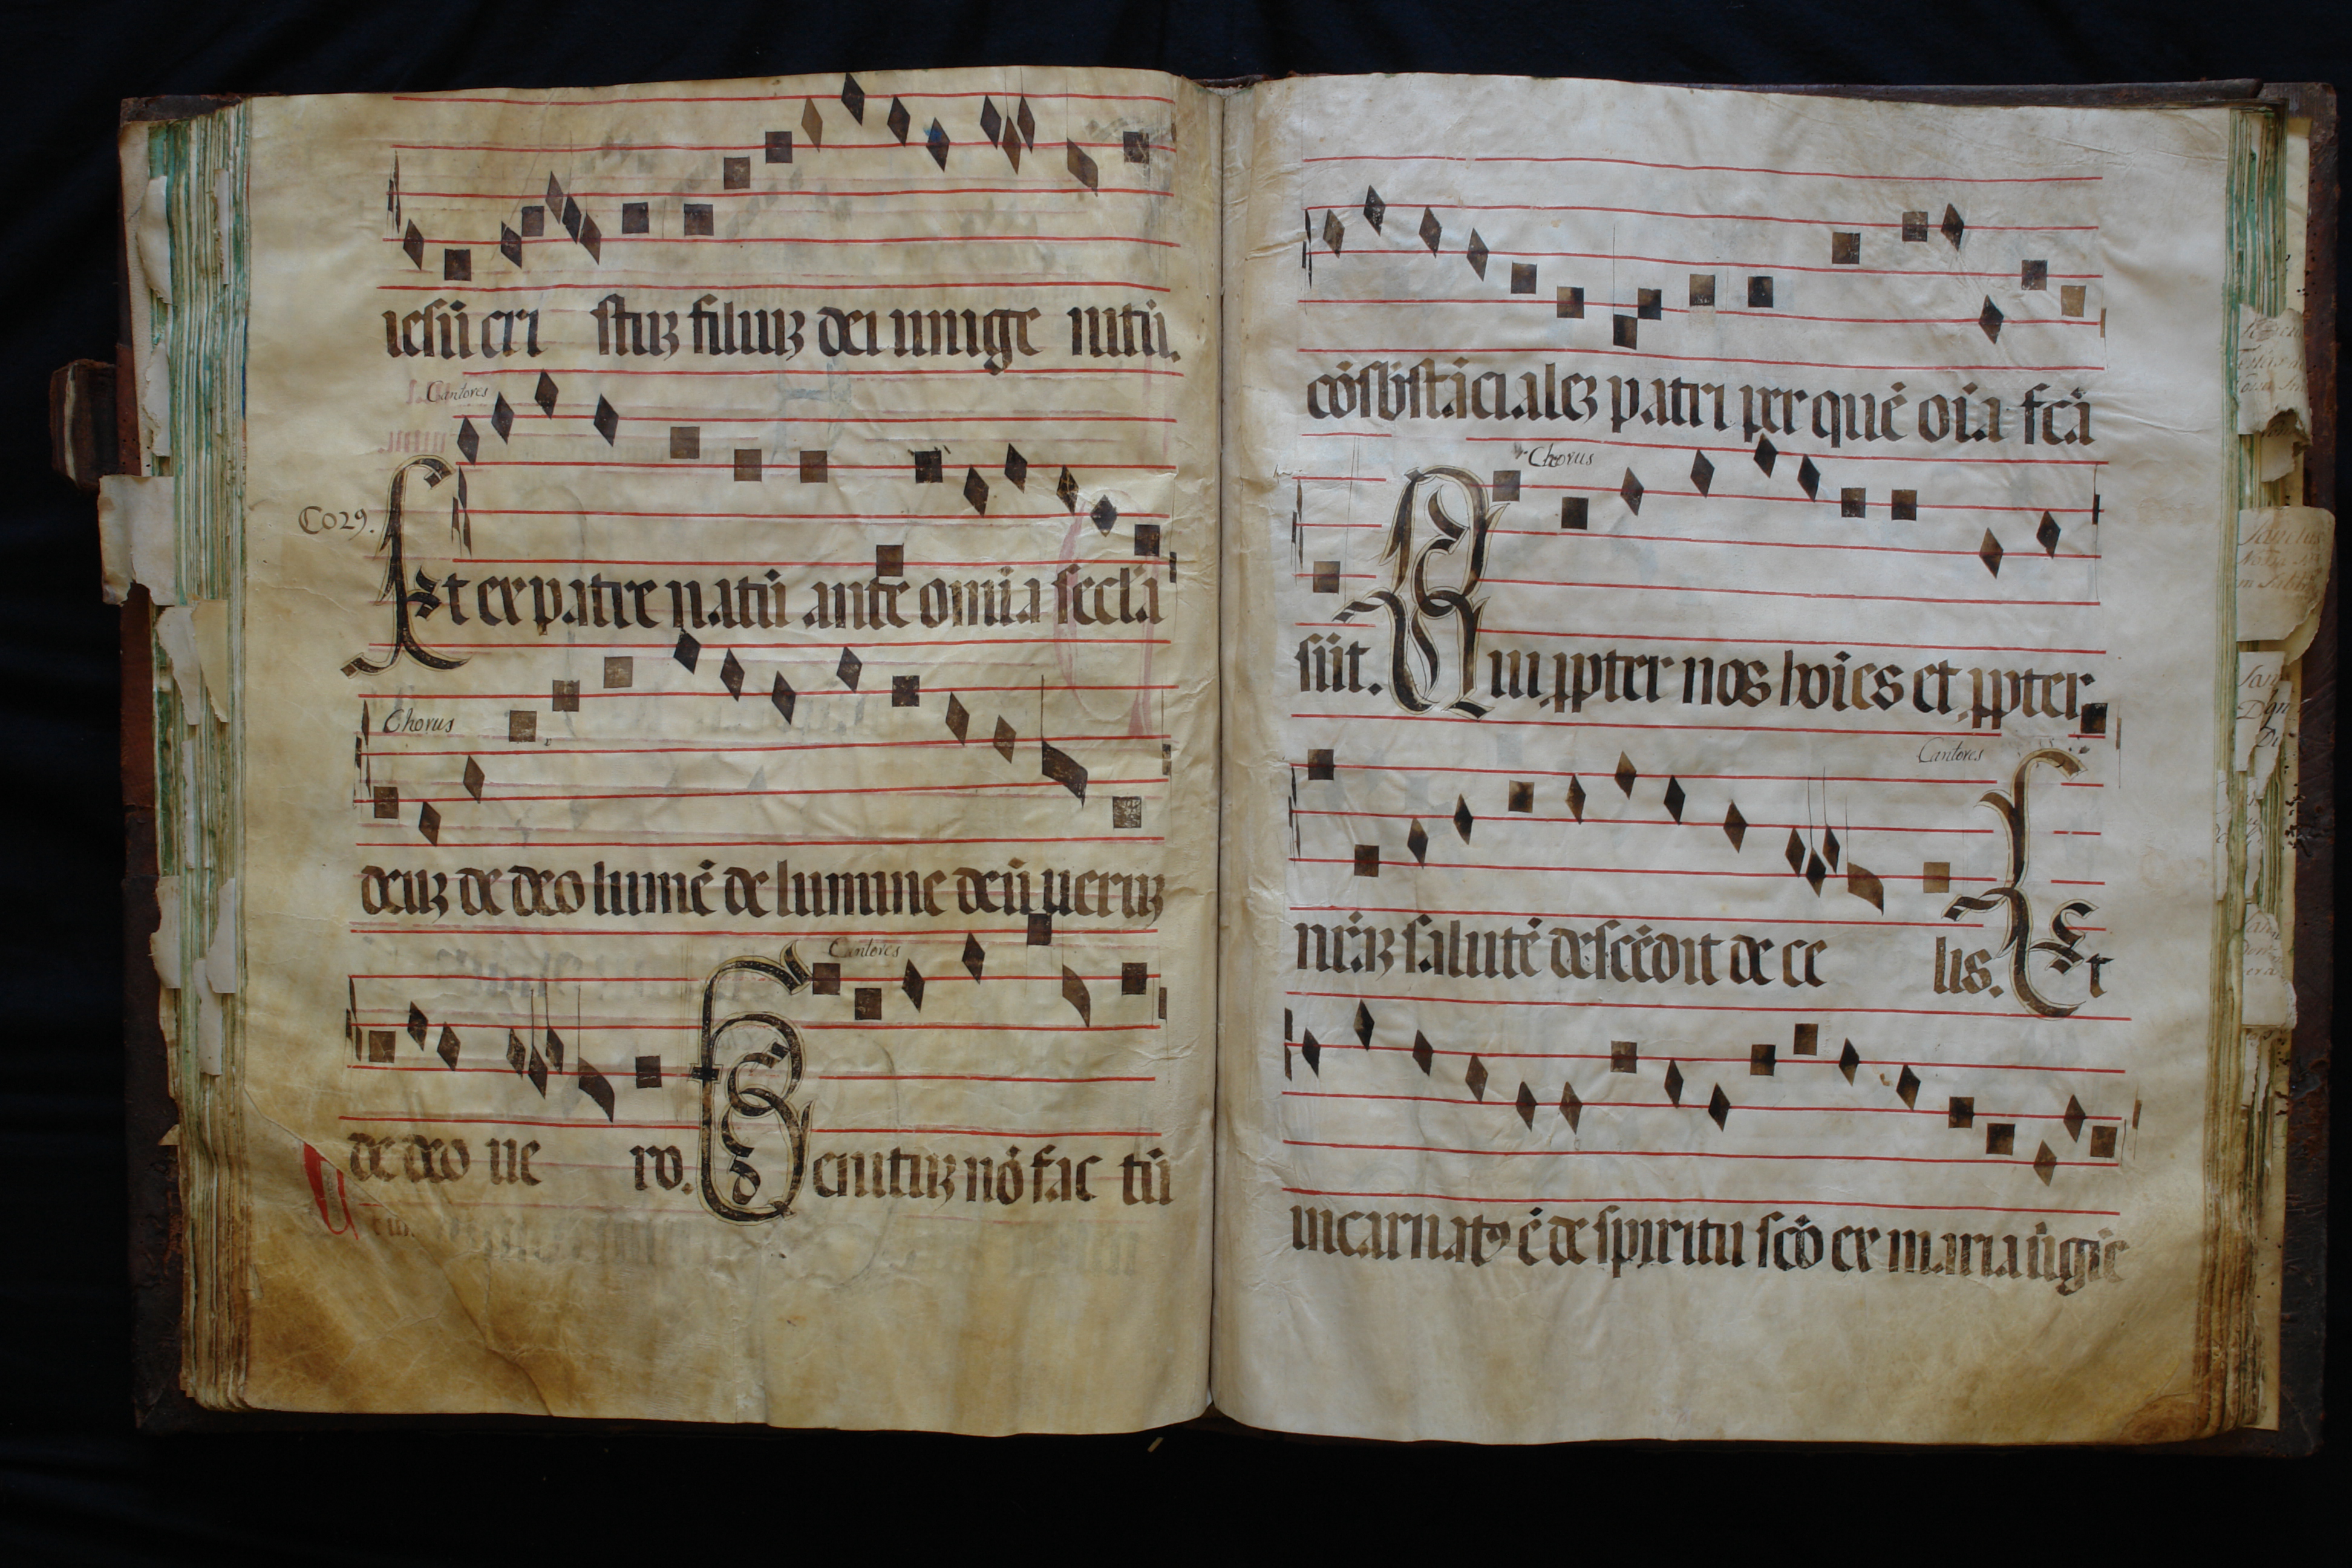 iesũ cri stuꝫ filiuꝫ dei unige nitũ.
Cantores
Co29.
Et ex patre natũ ante omĩa secl'a
Chorus
deuꝫ de deo lumẽ de lumine deũ ueruꝫ
Cantores
de deo ue ro. Genituꝫ nõ fac tũ
cõsbstãcialeꝫ patri per quẽ oĩa fcã
Chorus
sũt. Qui ꝓpter nos hoĩes et ꝓpter
Cantores
nr̃aꝫ salutẽ descẽdit de ce lis. Et
incarnatꝯ ẽ de spiritu scõ ex maria ũgiẽ